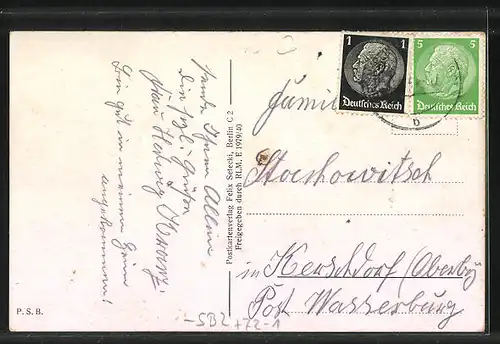 Sende Ihnen Allen
die hzl. Grüße
Frau Hedwig
bin gut in meinem Heim
angekommen!
Postkartenverlag Felix Setecki, Berlin C 2
Freigegeben durch RLM. E 1979/40
1 1
Deutsches Reich
5 5
Deutsches Reich
b
Stochowitsch
in Kerschdorf (Oberby
Post Wasserburg
P. S. B.
-SB2 +72-1